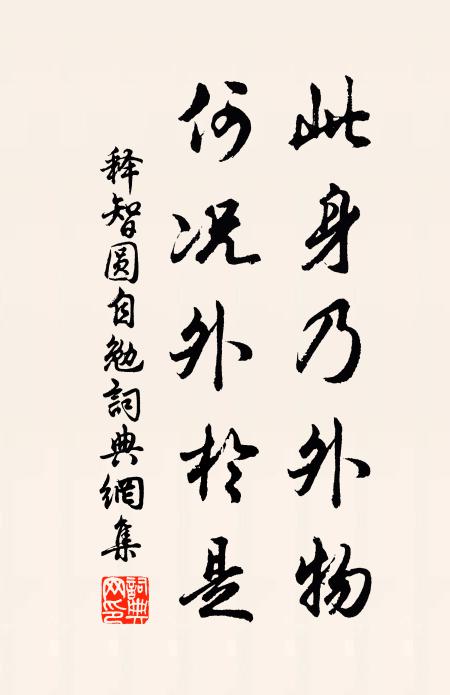 此身乃外物
何况外於是
释智圆自勉詞典網集
詞典網印